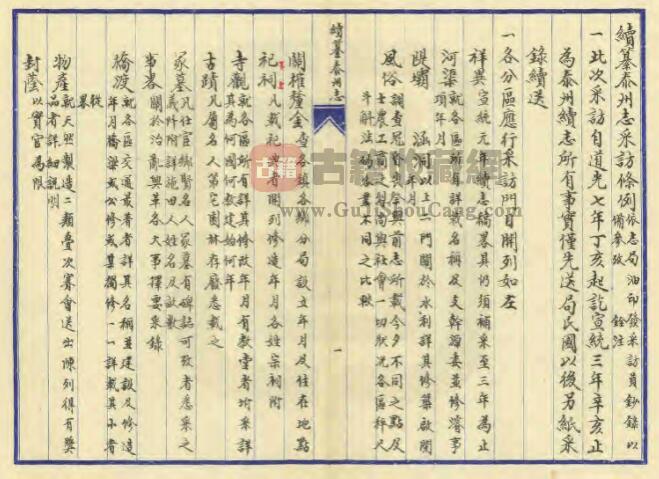 續纂泰州志采訪條例 依志局油印發采訪員鈔錄以備參攷 銓注
一此次采訪自道光七年丁亥起訖宣統三年辛亥止
為泰州續志所有事實僅先送局民國以後另紙采
錄續送
一各分區應行采訪門目開列如左
祥異 宣統元年續志稿畧具仍須補采至三年為止
河渠 就各區所有詳載名稱及支幹孰委並修濬事項年月
隄壩 涵洞以上二門關於水利詳其修築啟閉年月
風俗 調查冠昏喪祭與前志所載今夕不同之點及士農工商之習尚與社會一切狀況各區秤尺斗斛法碼參差不同之比較
續纂泰州志
一
關榷釐金 查各填各城分局設立年月及住在地點
祀祠 凡載祀典者開列修造年月各姓宗祠附
寺觀 其為何國何教建始何年月有教堂者坿采詳
古蹟 凡屬名人第宅園林存廢悉載之
冢墓 凡仕宦鄉賢名人冢墓有碑誌可攷者悉采之義阡附詳施田人姓名及畝數
事畧 關於治亂興革各大事擇要采錄
橋渡 就各區交通最著者詳其名稱並建設及修造年月橋梁或公修或某獨修一一詳載其小者從畧
物產 就天然製造二類疊次賽會送出陳列得有獎品者詳細說明
封蔭 以實官為限
古籍收藏網
www.GuJiShouCang.com